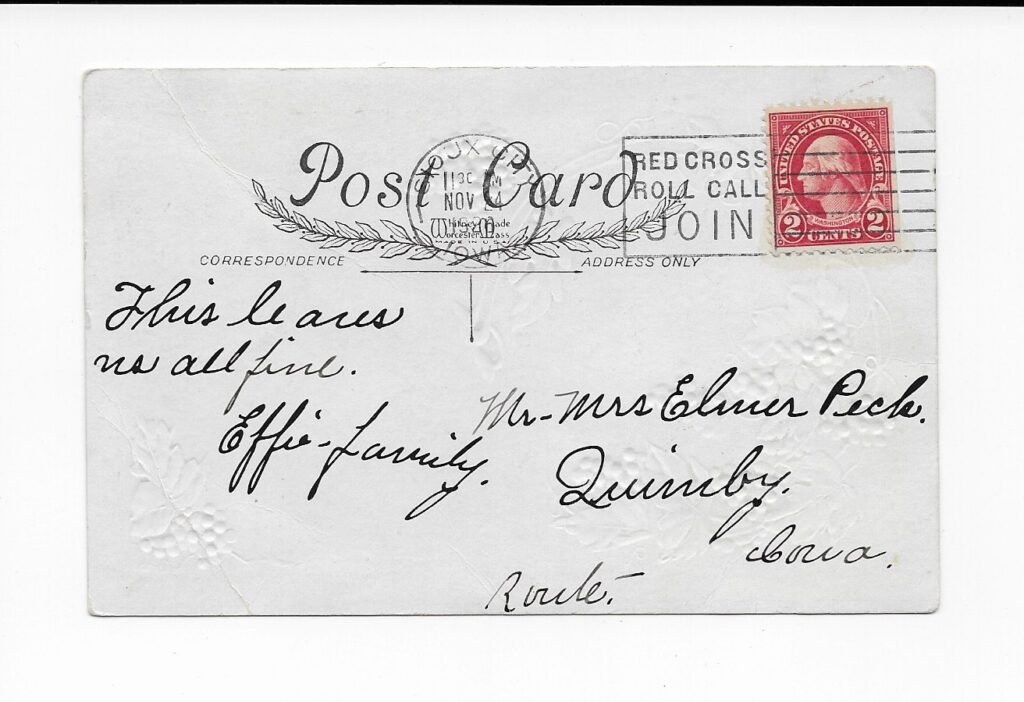 Post Card
SIOUX CITY
NOV 24
IOWA
Whitney Made
Worcester, Mass
MADE IN U.S.A.
RED CROSS
ROLL CALL
JOIN
UNITED STATES POSTAGE
WASHINGTON
2 CENTS 2
CORRESPONDENCE
ADDRESS ONLY
This leaves
us all fine.
Effie - family.
Mr - Mrs Elmer Peck.
Quimby.
Iowa.
Route.